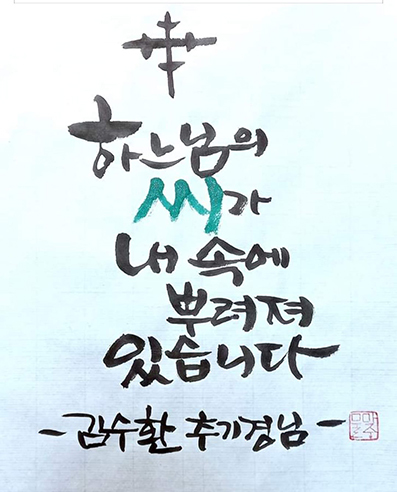 하느님의
씨가
내 속에
뿌려져
있습니다
-김수환 추기경님-